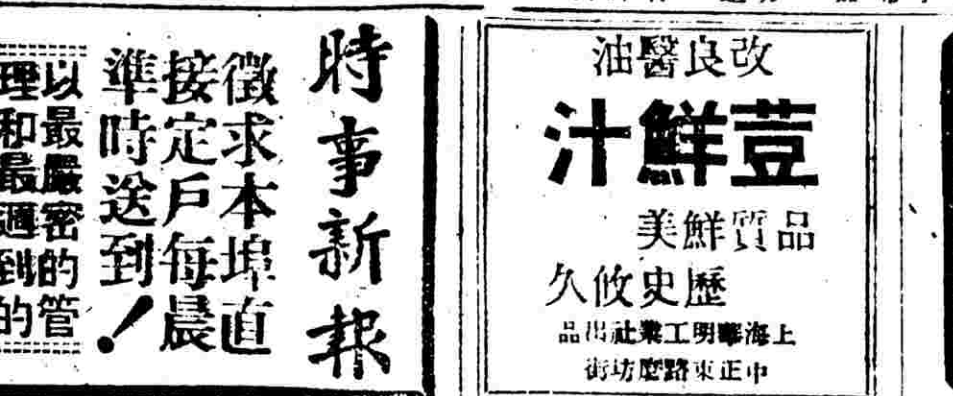 改良醫油
荳鮮汁
品質鮮美
歷史攸久
上海明工業社出品
中正東路坊街
時事新報
徵求本埠直
接定戶每晨
準時送到！
以最嚴密的管
理和最週到的